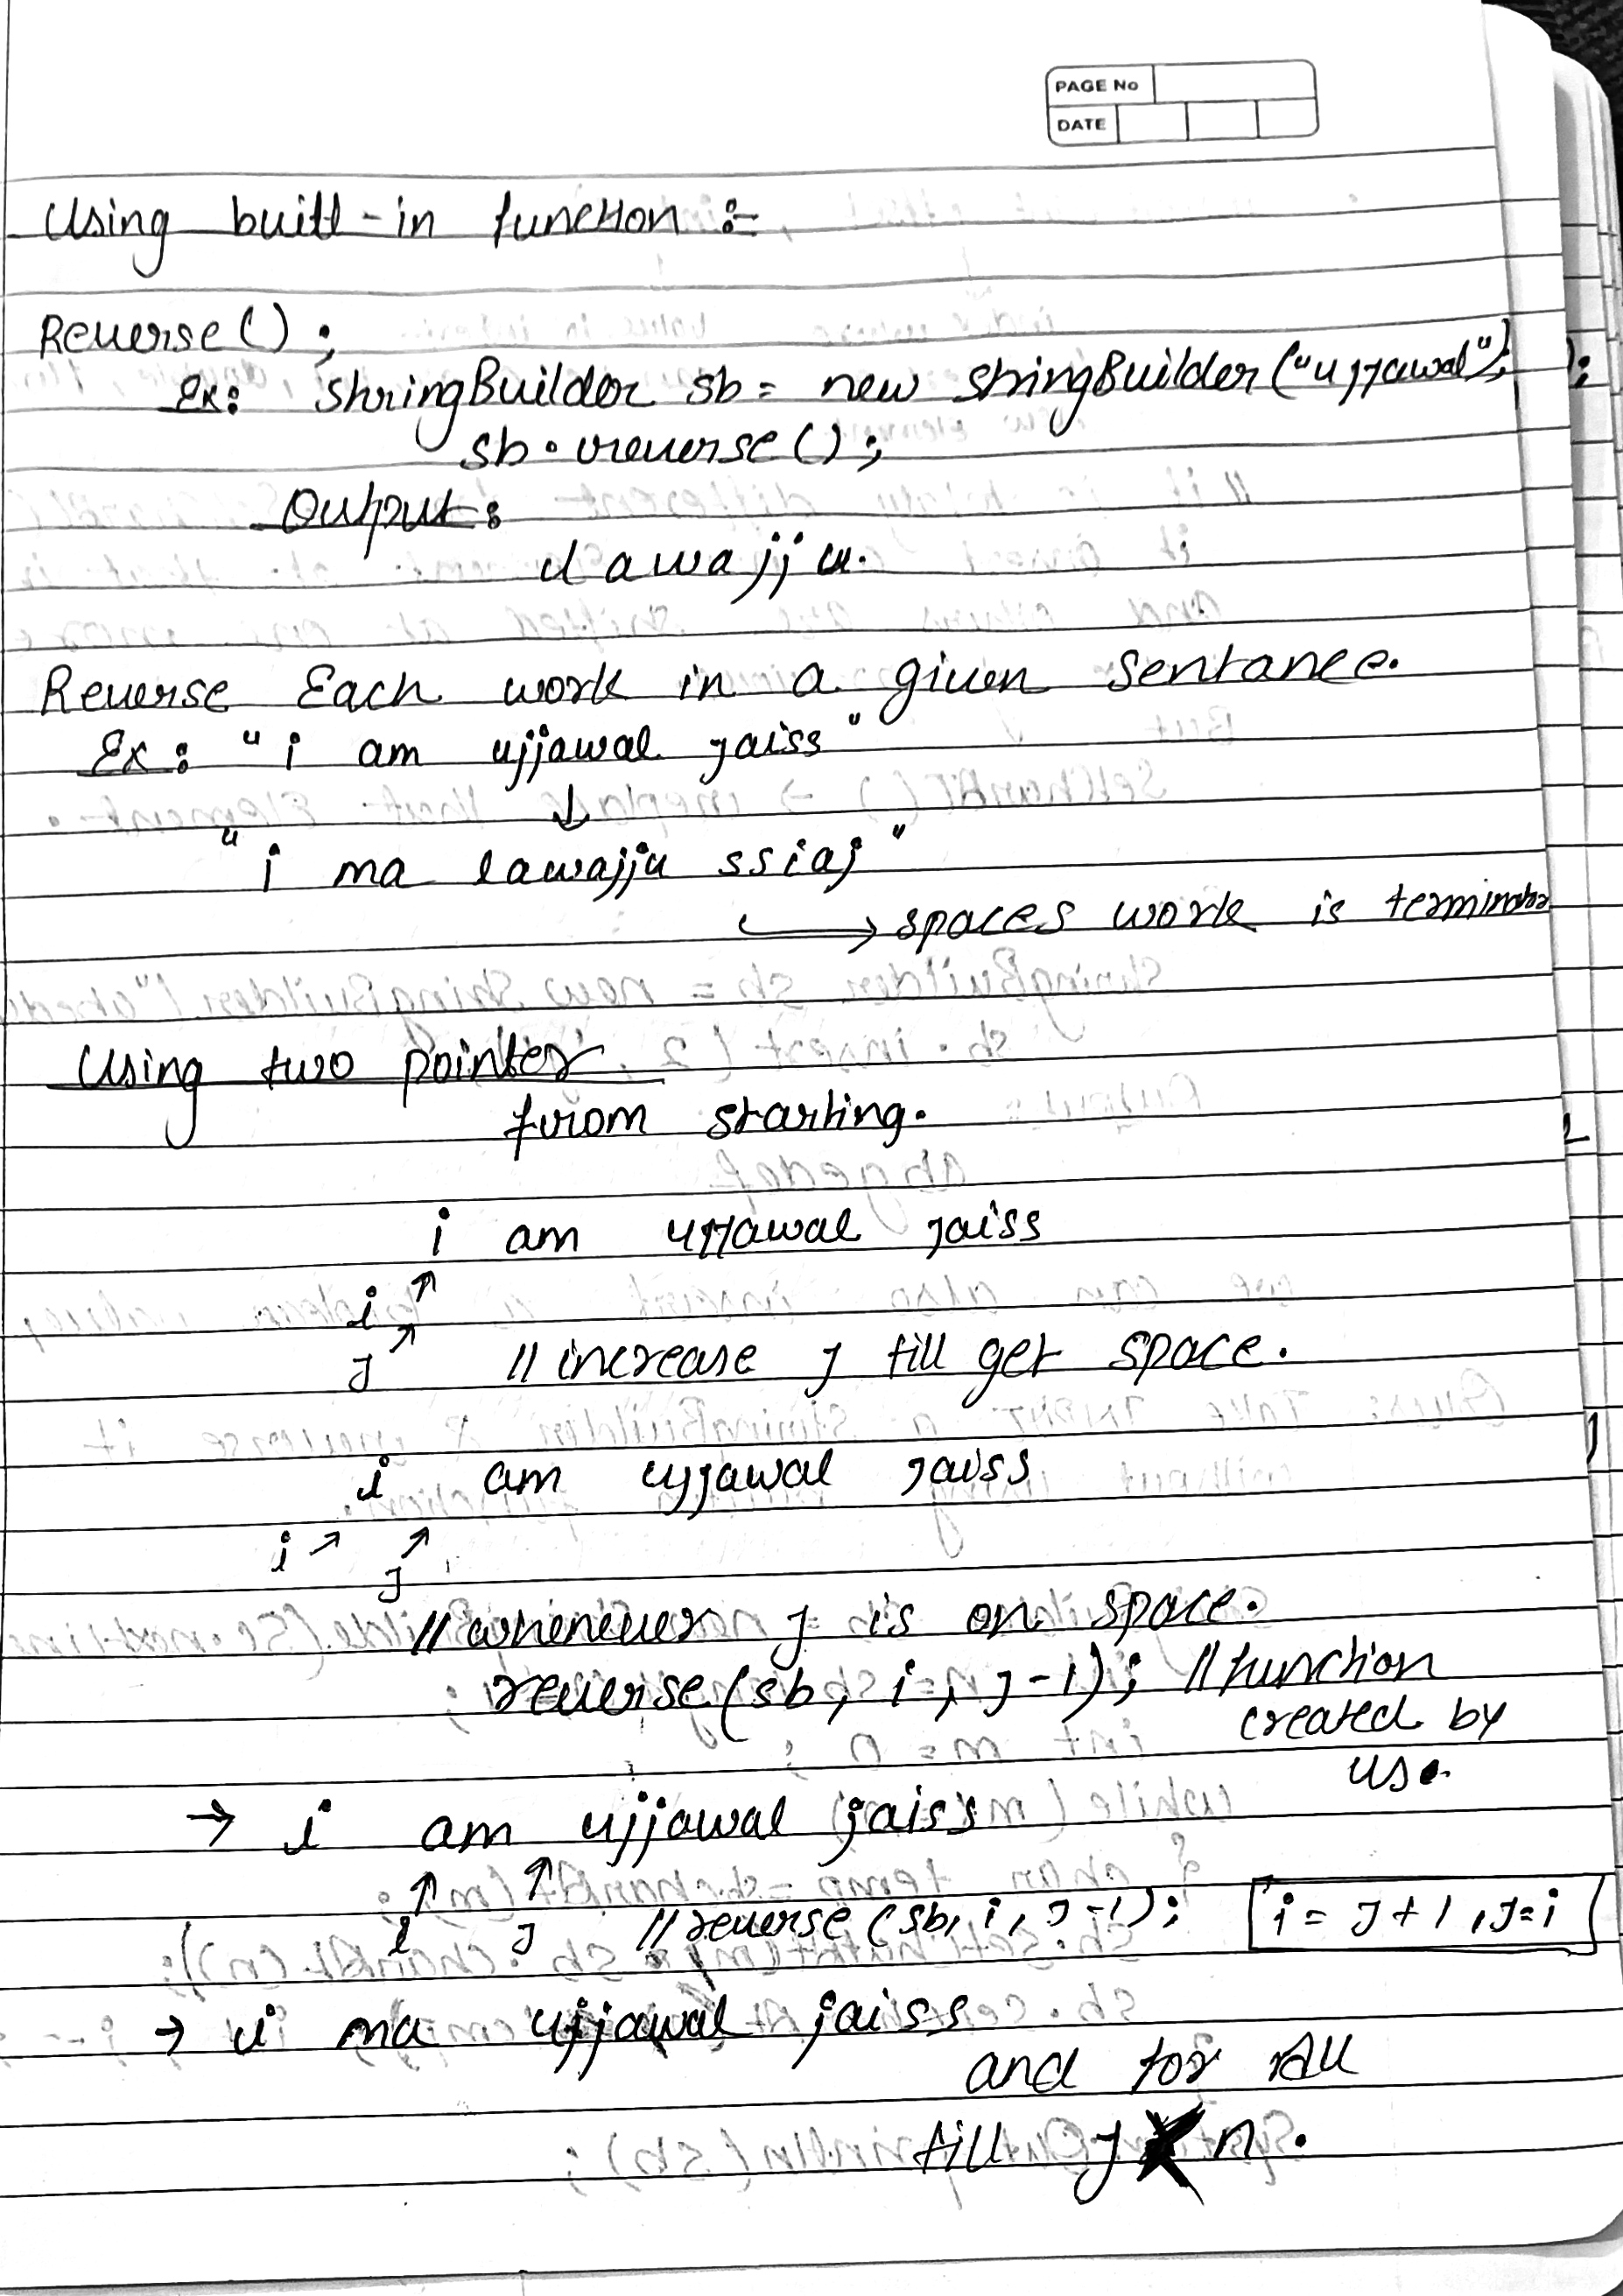 PAGE No
DATE
Using built-in function :-
Reverse();
Ex: StringBuilder sb = new StringBuilder("ujjawal");
sb.reverse();
Output:
lawajju.
Reverse Each work in a given Sentance.
Ex: "i am ujjawal jaiss"
↓
"i ma lawajju ssiaj"
→ spaces work is terminator
Using two pointer
from starting.
i am ujjawal jaiss
i ↑
J ↗ // increase j till get space.
i am ujjawal jaiss
i ↗ ↗
J
// whenever j is on space.
reverse(sb, i, J-1); // function
created by
us.
→ i am ujjawal jaiss
↑ ↑
i J // reverse(sb, i, J-1); i = J+1, J=i
→ i ma ujjawal jaiss
and for All
till J n.